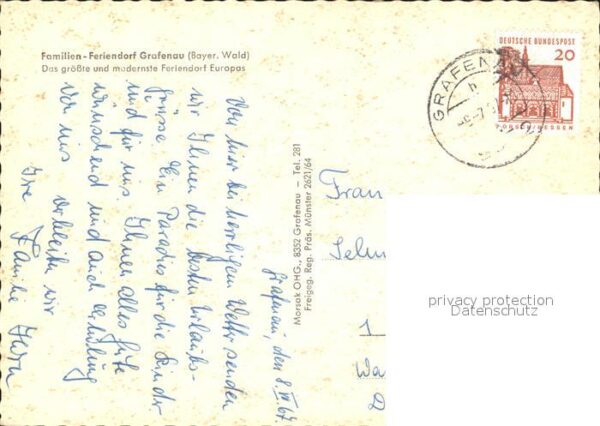 Familien-Feriendorf Grafenau (Bayer. Wald)
Das größte und modernste Feriendorf Europas
DEUTSCHE BUNDESPOST
20
LORSCH/HESSEN
GRAFENAU
Morsak OHG., 8352 Grafenau — Tel. 281
Freigeg. Reg. Präs. Münster 2621/64
Grafenau, den 8. VII 67
Von hier bei herrlichem Wetter senden
wir Ihnen die besten Urlaubs-
grüsse. Ein Paradies für die Kinder
und für uns. Ihnen alles Gute
wünschend und auch
von uns verbleiben wir
Ihre Familie
Frau
1
privacy protection
Datenschutz